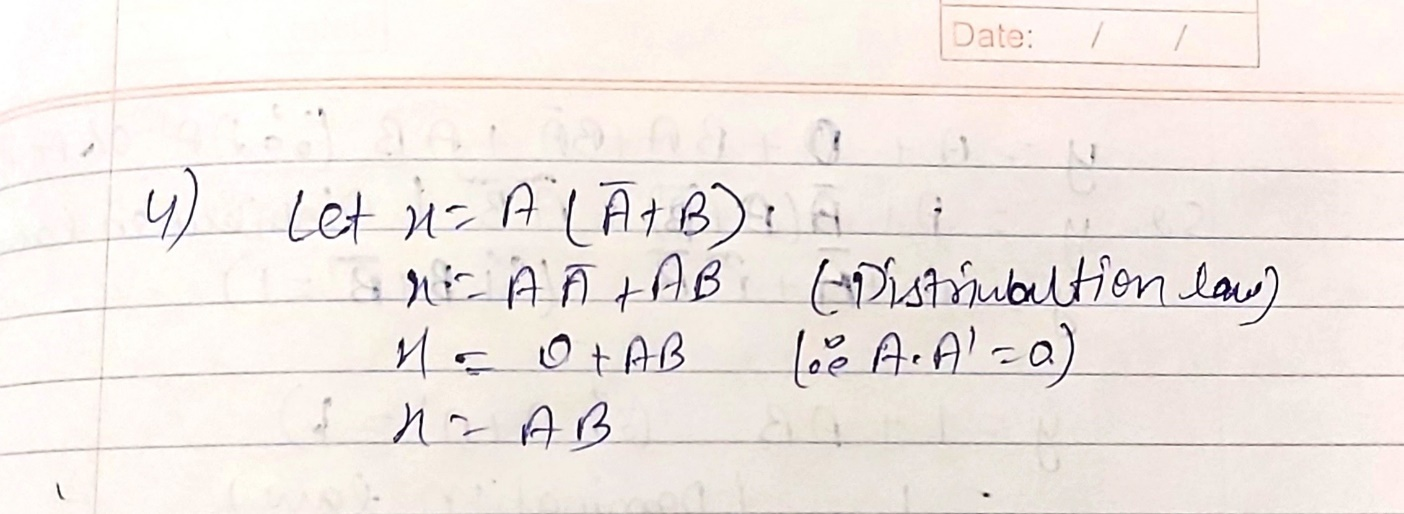 Date: / /
4) Let x = A (Ā+B)
x = A Ā + AB (Distriubaltion law)
x = 0 + AB (∵ A.A' = 0)
x = AB